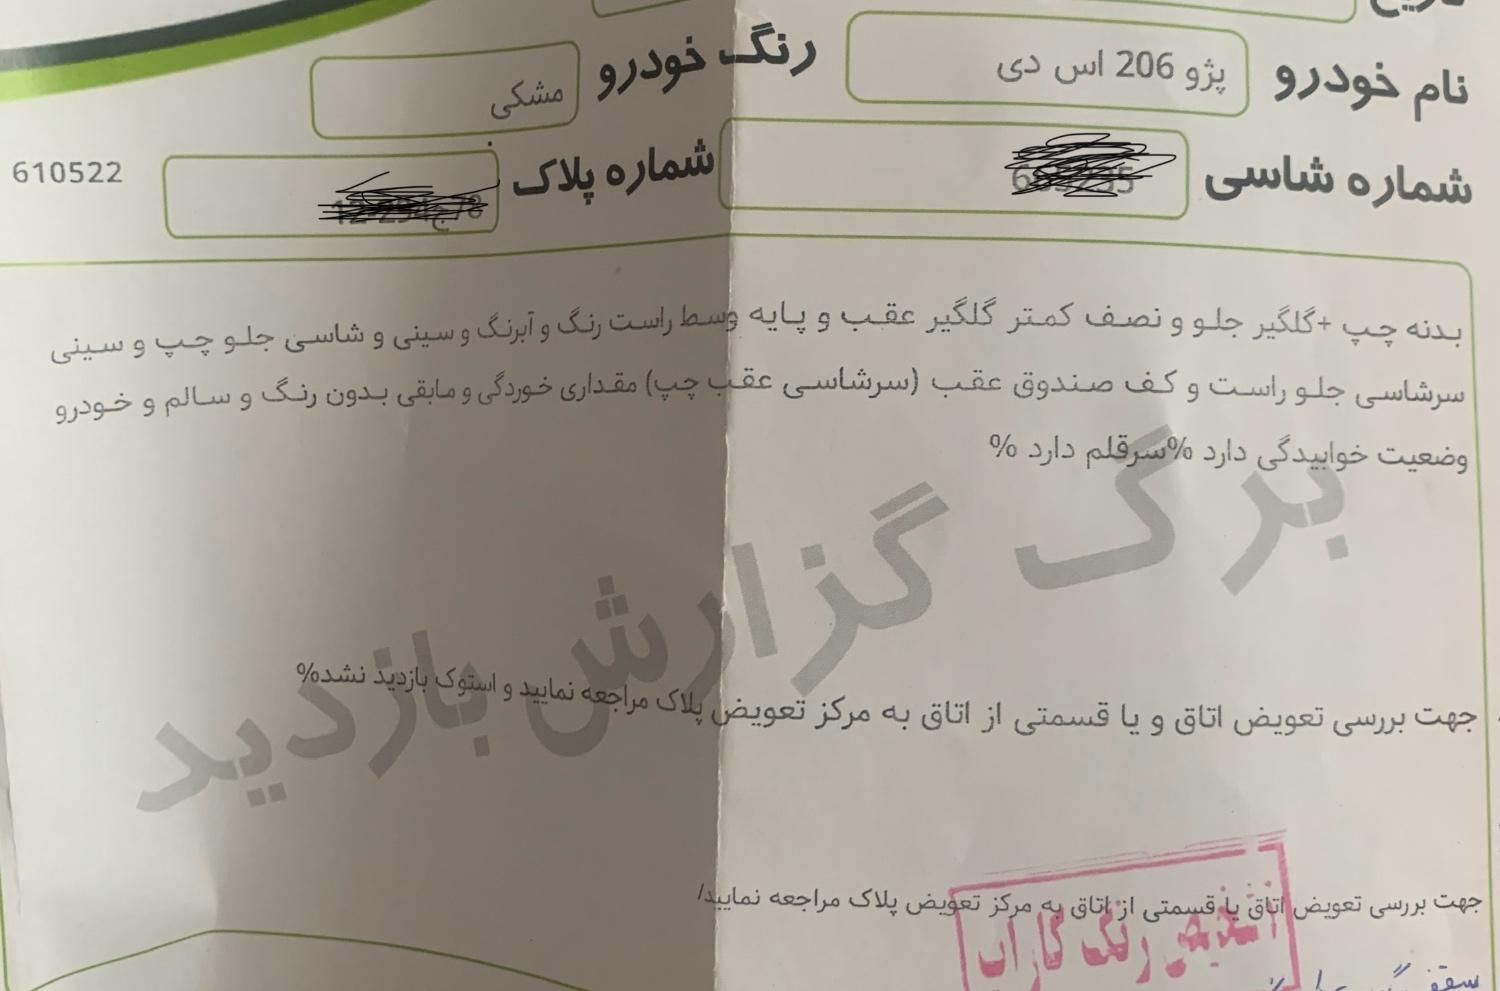 تاریخ
نام خودرو پژو 206 اس دی رنگ خودرو مشکی
شماره شاسی شماره پلاک 610522
بدنه چپ +گلگیر جلو و نصف کمتر گلگیر عقب و پایه وسط راست رنگ و آبرنگ و سینی و شاسی جلو چپ و سینی
سرشاسی جلو راست و کف صندوق عقب (سرشاسی عقب چپ) مقداری خوردگی و مابقی بدون رنگ و سالم و خودرو
وضعیت خوابیدگی دارد %سرقلم دارد %
برگ گزارش بازدید
جهت بررسی تعویض اتاق و یا قسمتی از اتاق به مرکز تعویض پلاک مراجعه نمایید و استوک بازدید نشد%
جهت بررسی تعویض اتاق یا قسمتی از اتاق به مرکز تعویض پلاک مراجعه نمایید/
تشخیص رنگ کاران
سقف